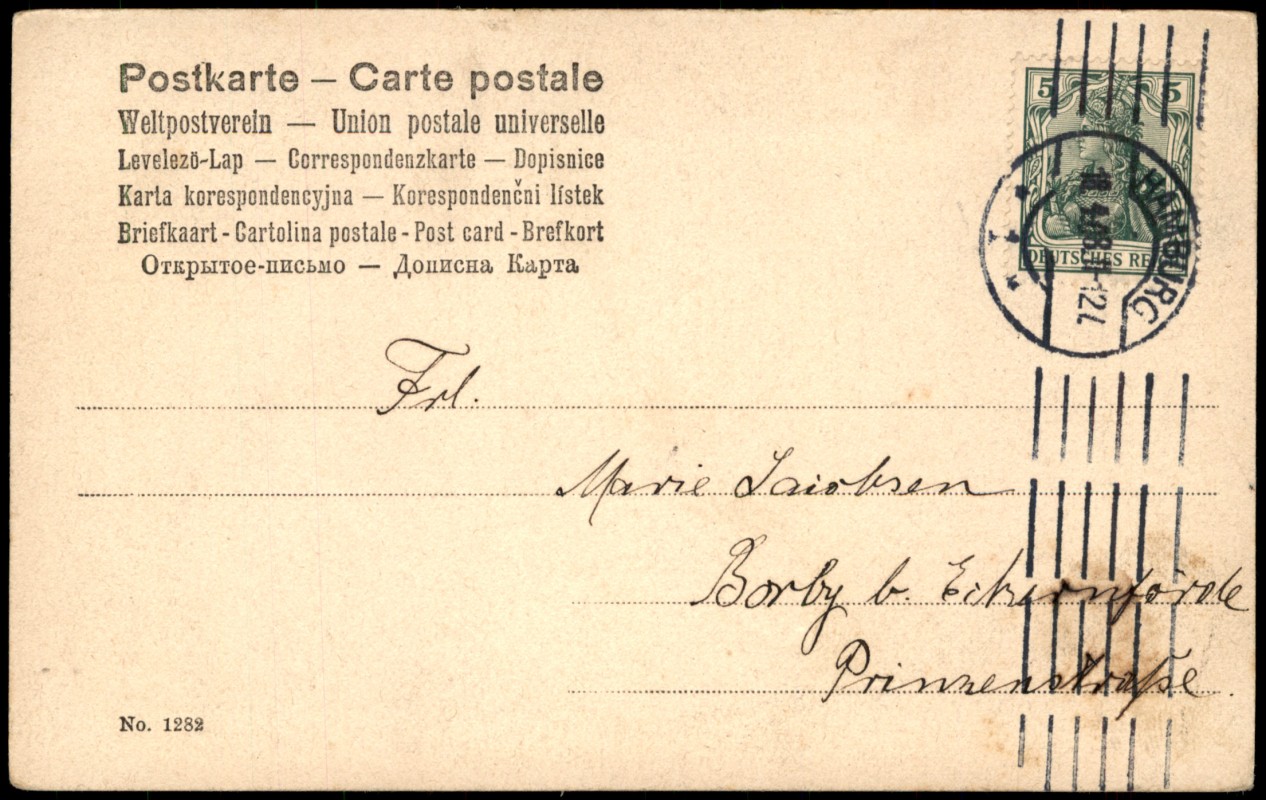 Postkarte — Carte postale
Weltpostverein — Union postale universelle
Levelezö-Lap — Correspondenzkarte — Dopisnice
Karta korespondencyjna — Korespondenčni lístek
Briefkaart - Cartolina postale - Post card - Brefkort
Открытое-письмо — Дописна Карта
5 5
DEUTSCHES REICH
HAMBURG
Frl.
Marie Jacobsen
Borby b. Eckernförde
Prinzenstraße.
No. 1282